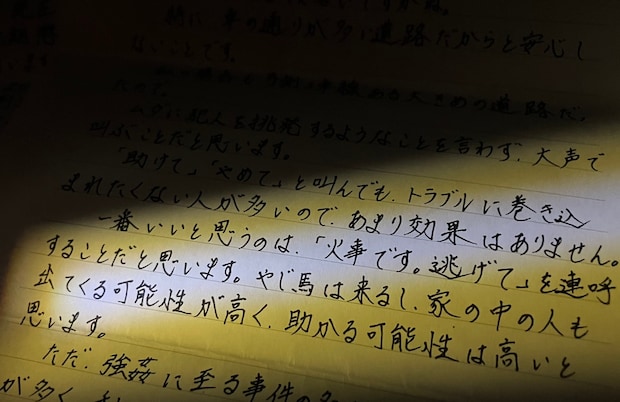 特に、車の通りが多い道路だからと安心し
ないことです。
大きめの道路だ。
ムダに犯人を挑発するようなことを言わず、大声で
叫ぶことだと思います。
「助けて」「やめて」と叫んでも、トラブルに巻き込
まれたくない人が多いので、あまり効果はありません。
一番いいと思うのは、「火事です。逃げて」を連呼
することだと思います。やじ馬は来るし、家の中の人も
出てくる可能性が高く、助かる可能性は高いと
思います。
ただ、強姦に至る事件の
が多く